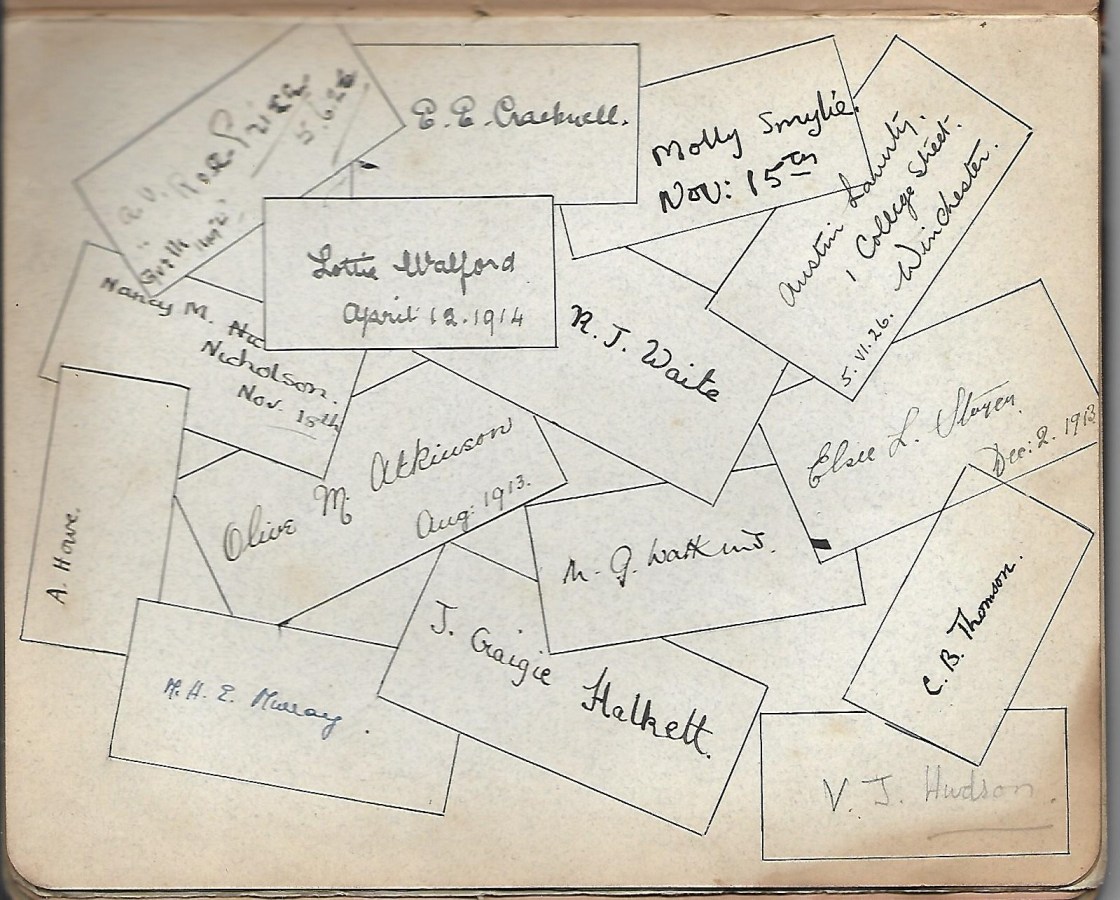 E. E. Cracknell.
Molly Smylie.
Nov: 15th
Austin
1 College Street.
Winchester.
5.VI.26.
a.V. Rose Price
5.6.26
Lottie Walford
April 12. 1914
Nancy M.
Nicholson.
Nov. 15th
R. J. Waite
Elsie L.
Dec: 2. 1913
Olive M. Atkinson
Aug: 1913.
A. Howe.
M. G. Watkins.
C. B. Thomson.
J. Craigie Halkett.
M. H. E. Murray.
V. J. Hudson.